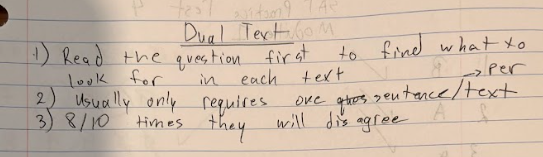 Dual Text
1) Read the question first to find what to
look for in each text
→ per
2) Usually only requires one sentence/text
3) 8/10 times they will disagree